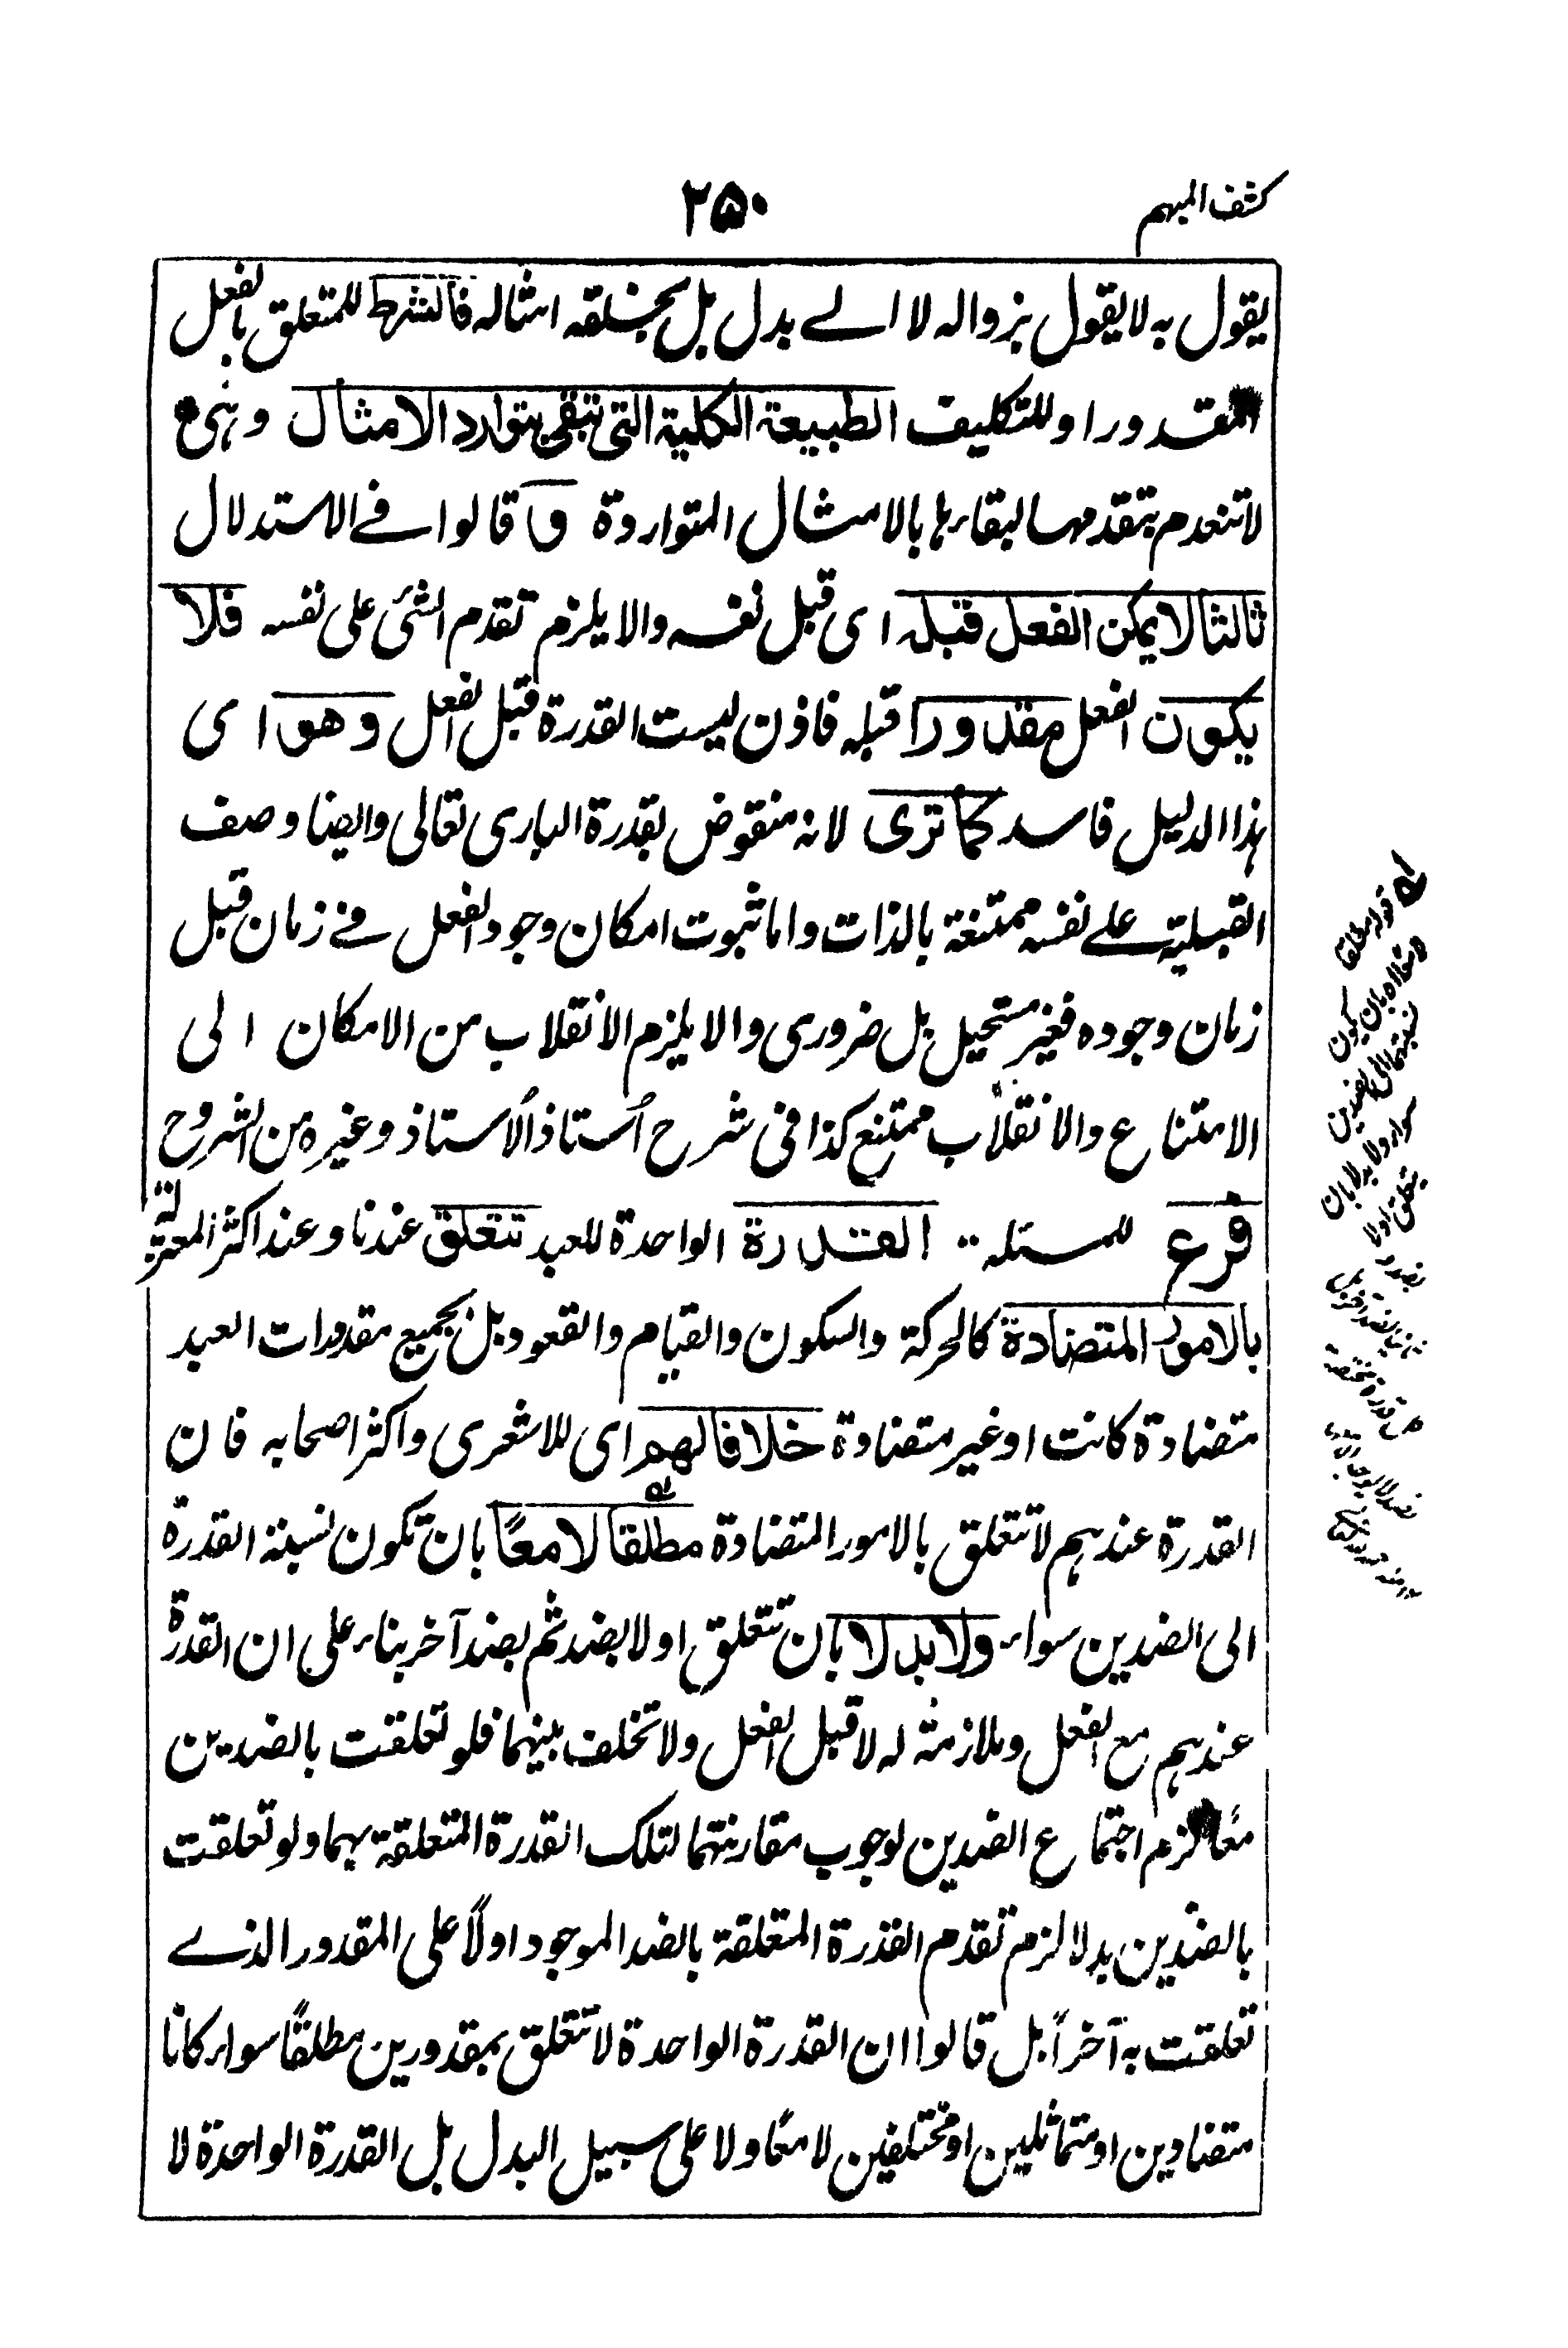 كشف المبهم
٢٥٠
يقول به لا يقول بزواله لا الے بدل بل بخلقه امثاله فالشرط للمتعلق بالفعل
المقدور او للتكليف الطبيعة الكلية التي تبقى بتوارد الامثال وهى
لا تنعدم بتقدمها لبقائها بالامثال المتواردة و قالوا فے الاستدلال
ثالثا لا يمكن الفعل قبله اى قبل نفسه والا يلزم تقدم الشئ على نفسه فلا
يكون الفعل مقدورا قبله فاذن ليست القدرة قبل الفعل وهو اى
هذا الدليل فاسد كما ترى لانه منقوض بقدرة البارى تعالى وايضا وصف
القبلية علے نفسه ممتنعة بالذات واما ثبوت امكان وجود الفعل فے زمان قبل
زمان وجوده فغير مستحيل بل ضرورى والا يلزم الانقلاب من الامكان الى
الامتناع والانقلاب ممتنع كذا فى شرح أستاذ الأستاذ وغيره من الشروح
فرع للمسئلة القدرة الواحدة للعبد تتعلق عندنا وعند اكثر المعتزلة
بالامور المتضادة كالحركة والسكون والقيام والقعود بل بجميع مقدورات العبد
متضادة كانت او غير متضادة خلافا لهم اى للاشعرى واكثر اصحابه فان
القدرة عندهم لا تتعلق بالامور المتضادة مطلقا لا معًا بان تكون نسبة القدرة
الى الضدين سواء ولا بدلا بان تتعلق اولا بضد ثم بضد آخر بناء على ان القدرة
عندهم مع الفعل وملازمة له لا قبل الفعل ولا تخلف بينهما فلو تعلقت بالضدين
معًا لزم اجتماع الضدين لوجوب مقارنتهما لتلك القدرة المتعلقة بهما ولو تعلقت
بالضدين بدلا لزم تقدم القدرة المتعلقة بالضد الموجود اولًا على المقدور الذے
تعلقت به آخرًا بل قالوا ان القدرة الواحدة لا تتعلق بمقدورين مطلقًا سواء كانا
متضادين او متماثلين او مختلفين لا معًا ولا على سبيل البدل بل القدرة الواحدة لا
قوله مطلقا
بان يكون
نسبتها الى الضدين
سواء ولا بدلا بان
تتعلق اولا